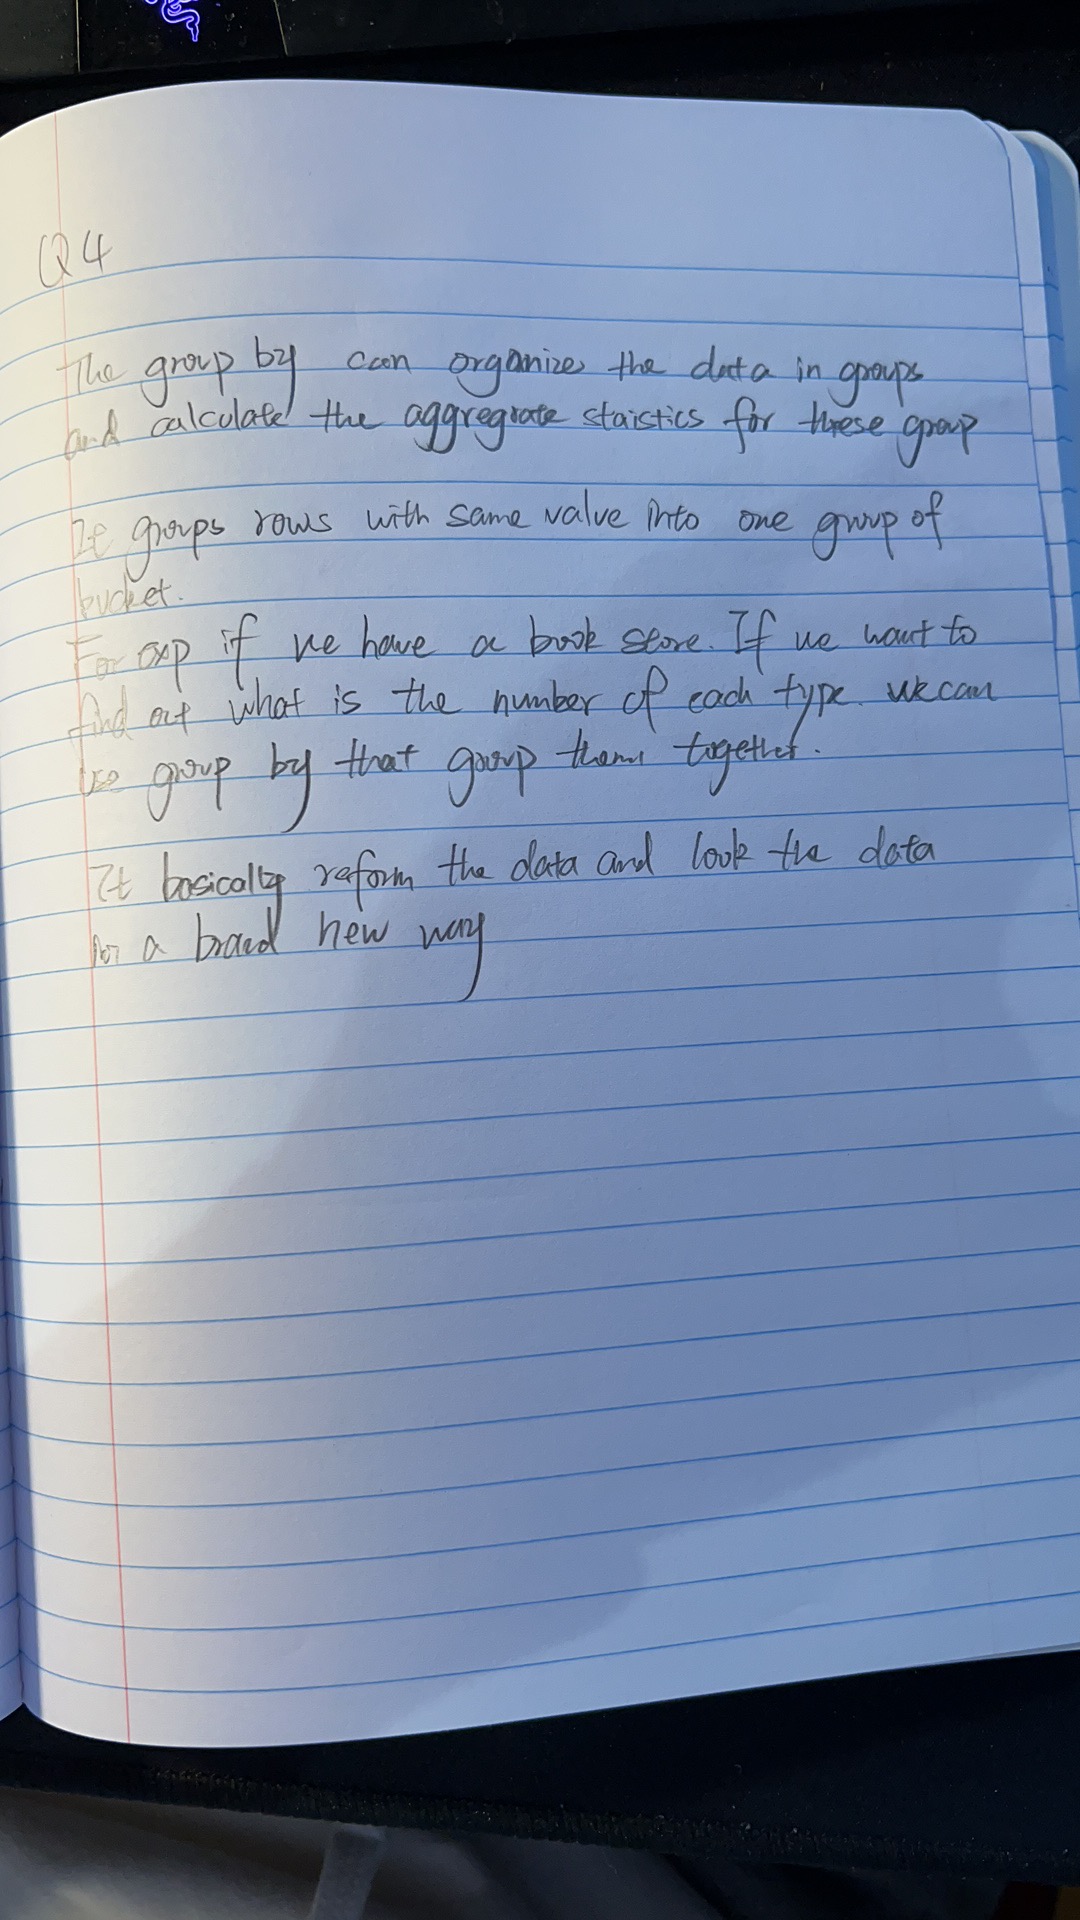 Q4
The group by can organizes the data in groups
and calculate the aggregrate staistics for these group
It groups rows with same value into one group of
bucket.
For exp if we have a book store. If we want to
find out what is the number of each type. we can
use group by that group them together.
It basically reform the data and look the data
in a brand new way